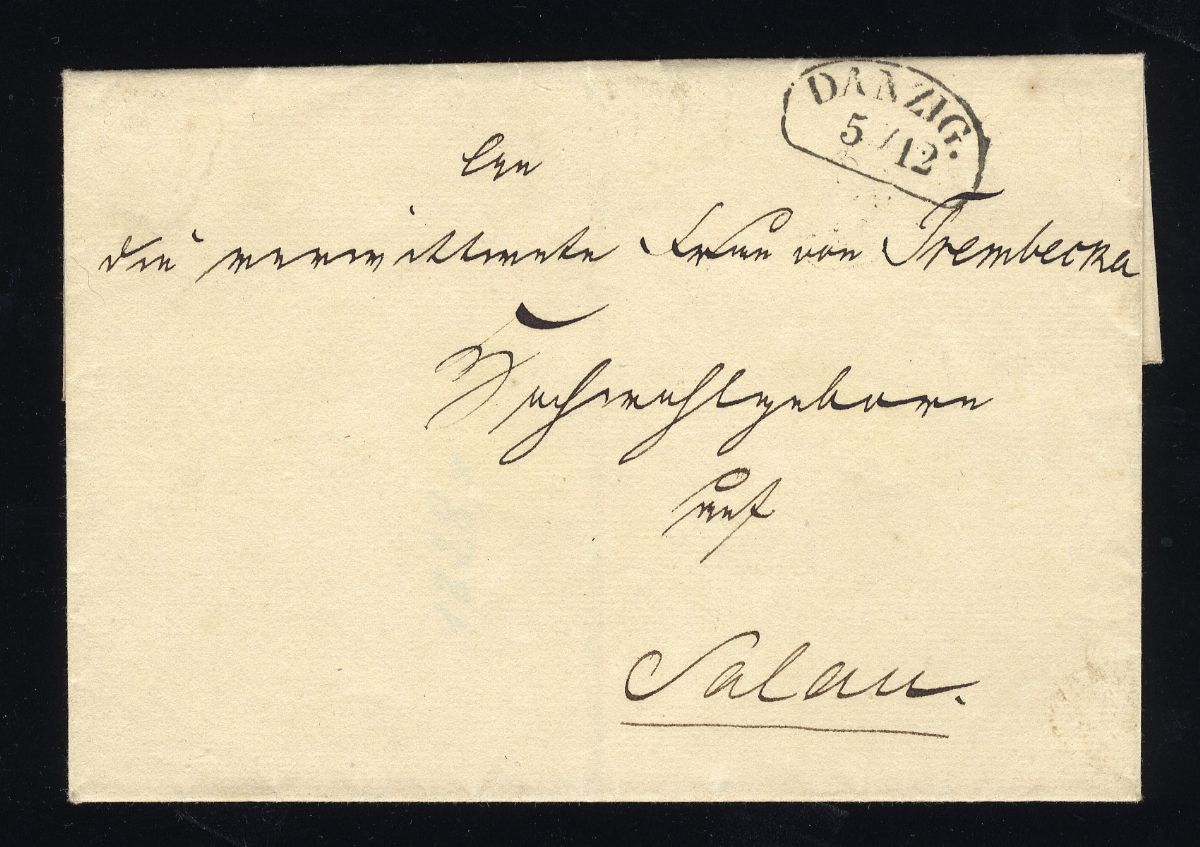 DANZIG.
5/12
An
die verwittwete Frau von Trembecka
Hochwohlgeborn
auf
Salau.